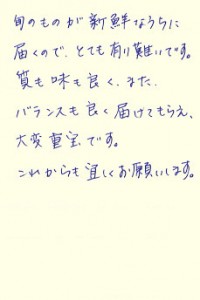 旬のものが新鮮なうちに
届くので、とても有り難いです。
質も味も良く、また、
バランスも良く届けてもらえ、
大変重宝です。
これからも宜しくお願いします。